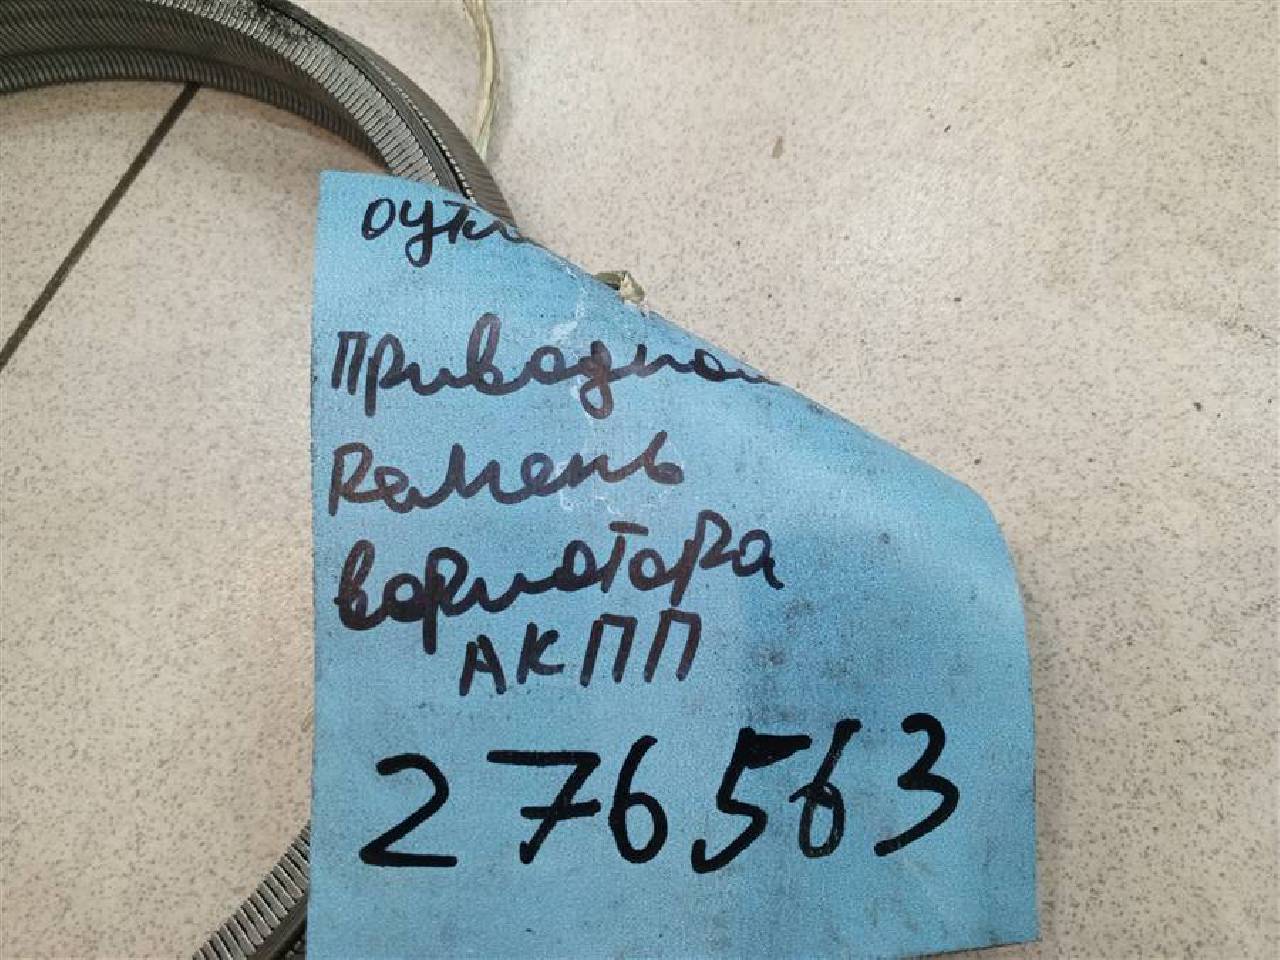 Приводной
Ремень
вариатора
АКПП
276563